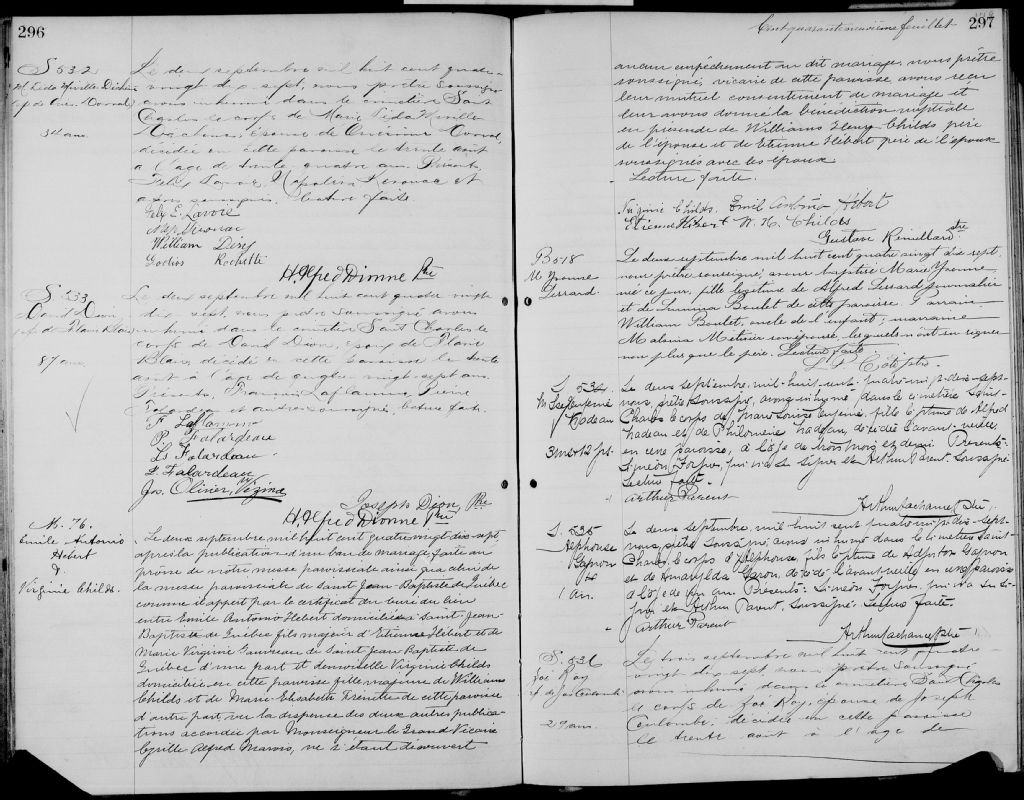 296
S 532
34 ans
Le deux septembre mil huit cent quatre-
vingt dix sept, nous prêtre soussigné
avons inhumé dans le cimetière Saint
Charles le corps de Marie
décédée en cette paroisse le trente août
à l'age de trente quatre ans. Présents,
Napoléon Kerouac et
Lecture faite
William
H. Alfred Dionne Ptre
S 533
87 ans
Le deux septembre mil huit cent quatre vingt
dix sept, nous prêtre soussigné avons
inhumé dans le cimetière Saint Charles le
corps de David Dion, époux de
Blais, décédé en cette paroisse le trente
août à l'age de quatre vingt sept ans.
Présents, François Laflamme, Pierre
et autres soussignés. Lecture faite.
F Laflamme
P. Falardeau
Ls Falardeau
F Falardeau
Jos. Olivier Vézina
Joseph Dion Ptre
H. Alfred Dionne Ptre
M. 76.
Emile Antonio
Hebert
&
Virginie Childs.
Le deux septembre mil huit cent quatre vingt dix sept,
après la publication d'un ban de mariage faite au
prône de notre messe paroissiale ainsi qu'à celui de
la messe paroissiale de Saint Jean-Baptiste de Québec
comme il appert par le certificat du curé du lieu
entre Emile Antonio Hebert domicilié à Saint Jean-
Baptiste de Québec fils majeur d'Etienne Hébert et de
Marie Virginie Gauvreau de Saint Jean Baptiste de
Québec d'une part et demoiselle Virginie Childs
domiciliée en cette paroisse fille majeure de Williams
Childs et de Marie Elisabeth Frenette de cette paroisse
d'autre part, vu la dispense des deux autres publica-
tions accordée par Monseigneur le Grand Vicaire
Cyrille Alfred Marois, ne s'étant découvert
Cent quarante neuvième feuillet
297
aucun empêchement au dit mariage, nous prêtre
soussigné, vicaire de cette paroisse avons reçu
leur mutuel consentement de mariage et
leur avons donné la bénédiction nuptiale
en présence de Williams Henry Childs père
de l'épouse et de Etienne Hébert père de l'époux
soussignés avec les époux
Lecture faite.
Virginie Childs. Emile Antonio Hébert
Etienne Hébert W. H. Childs
Gustave Rémillard ptre
B 518
M Yvonne
Lessard
Le deux septembre mil huit cent quatre vingt dix sept
nous prêtre soussigné, avons baptisé Marie Yvonne
née ce jour, fille légitime de Alfred Lessard journalier
et de Boulet de cette paroisse. Parrain
William Boulet, oncle de l'enfant; marraine
son épouse, lesquels n'ont su signer
non plus que le père. Lecture faite
L. P. Côté ptre.
S. 534
Nadeau
3 ms 12 jrs.
Le deux septembre, mil-huit-cent-quatre-vingt-dix-sept
nous, prêtre soussigné, avons inhumé dans le cimetière Saint-
Charles le corps de Marie Louise Eugénie, fille légitime de Alfred
Nadeau et de Philomène Nadeau, décédée l'avant-veille,
en cette paroisse, à l'âge de trois mois et demi. Présents:
Siméon Forgues, qui n'a su signer et Arthur Parent. Soussigné
Lecture faite.
Arthur Parent
Arthur Lachance Ptre
S. 535
Alphonse
Gagnon
1 an.
Le deux septembre, mil huit cent quatre-vingt-dix-sept
nous, prêtre soussigné, avons inhumé dans le cimetière Saint-
Charles le corps d'Alphonse, fils légitime de Adjutor Gagnon
et de décédé l'avant veille en cette paroisse
à l'âge de un an. Présents: Siméon Forgues qui n'a su si-
gner et Arthur Parent. Soussigné. Lecture faite.
Arthur Parent
Arthur Lachance Ptre
S. 536
29 ans.
Le trois septembre mil huit cent quatre-
vingt dix sept nous prêtre soussigné
avons inhumé dans le cimetière Saint Charles
le corps de Roy, épouse de Joseph
Coulombe, décédée en cette paroisse
le trente août à l'age de